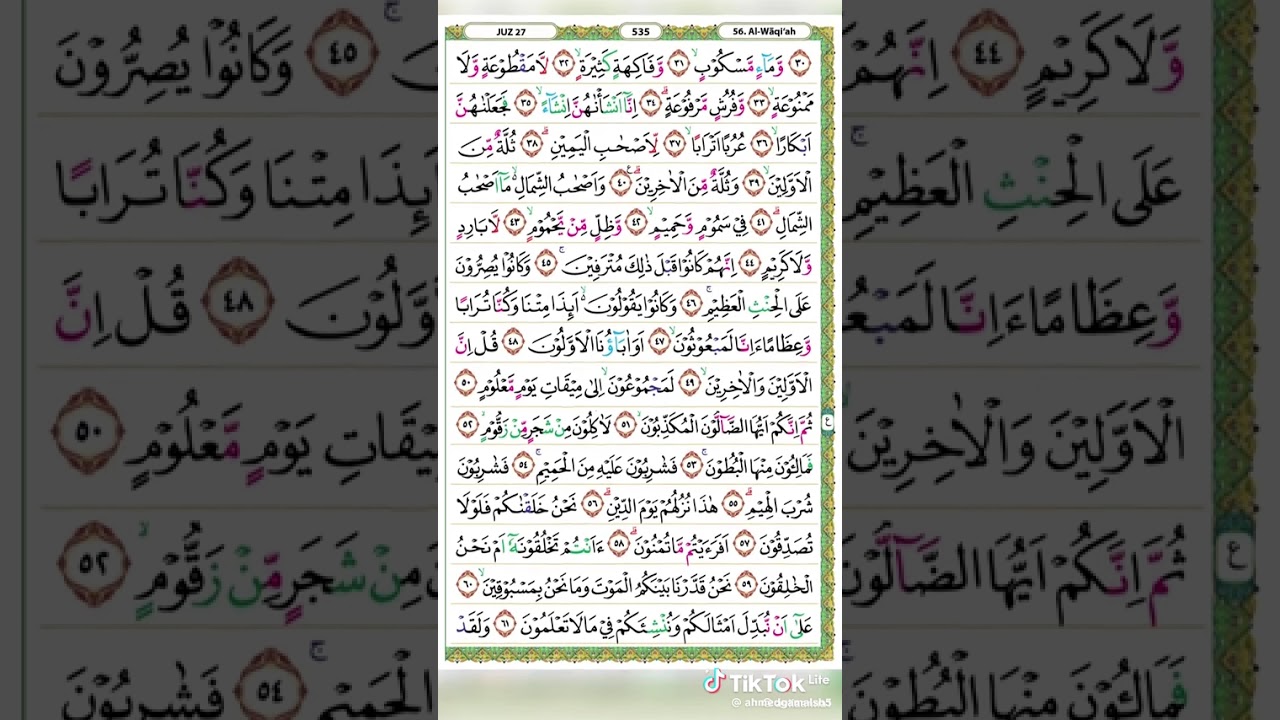 JUZ 27
535
56. Al-Wāqi‘ah
٣٠ وَّمَاۤءٍ مَّسْكُوْبٍۙ ٣١ وَّفَاكِهَةٍ كَثِيْرَةٍۙ ٣٢ لَّا مَقْطُوْعَةٍ وَّلَا
مَمْنُوْعَةٍۙ ٣٣ وَّفُرُشٍ مَّرْفُوْعَةٍۗ ٣٤ اِنَّآ اَنْشَأْنٰهُنَّ اِنْشَاۤءًۙ ٣٥ فَجَعَلْنٰهُنَّ
اَبْكَارًاۙ ٣٦ عُرُبًا اَتْرَابًاۙ ٣٧ لِّاَصْحٰبِ الْيَمِيْنِۗ ٣٨ ثُلَّةٌ مِّنَ
الْاَوَّلِيْنَۙ ٣٩ وَثُلَّةٌ مِّنَ الْاٰخِرِيْنَۗ ٤٠ وَاَصْحٰبُ الشِّمَالِۙ مَآ اَصْحٰبُ
الشِّمَالِۗ ٤١ فِيْ سَمُوْمٍ وَّحَمِيْمٍۙ ٤٢ وَّظِلٍّ مِّنْ يَّحْمُوْمٍۙ ٤٣ لَّا بَارِدٍ
وَّلَا كَرِيْمٍ ٤٤ اِنَّهُمْ كَانُوْا قَبْلَ ذٰلِكَ مُتْرَفِيْنَۚ ٤٥ وَكَانُوْا يُصِرُّوْنَ
عَلَى الْحِنْثِ الْعَظِيْمِۚ ٤٦ وَكَانُوْا يَقُوْلُوْنَۙ اَىِٕذَا مِتْنَا وَكُنَّا تُرَابًا
وَّعِظَامًا ءَاِنَّا لَمَبْعُوْثُوْنَۙ ٤٧ اَوَاٰبَاۤؤُنَا الْاَوَّلُوْنَ ٤٨ قُلْ اِنَّ
الْاَوَّلِيْنَ وَالْاٰخِرِيْنَۙ ٤٩ لَمَجْمُوْعُوْنَۙ اِلٰى مِيْقَاتِ يَوْمٍ مَّعْلُوْمٍ ٥٠
ثُمَّ اِنَّكُمْ اَيُّهَا الضَّاۤلُّوْنَ الْمُكَذِّبُوْنَۙ ٥١ لَاٰكِلُوْنَ مِنْ شَجَرٍ مِّنْ زَقُّوْمٍۙ ٥٢
فَمَالِـُٔوْنَ مِنْهَا الْبُطُوْنَۚ ٥٣ فَشٰرِبُوْنَ عَلَيْهِ مِنَ الْحَمِيْمِۚ ٥٤ فَشٰرِبُوْنَ
شُرْبَ الْهِيْمِۗ ٥٥ هٰذَا نُزُلُهُمْ يَوْمَ الدِّيْنِۗ ٥٦ نَحْنُ خَلَقْنٰكُمْ فَلَوْلَا
تُصَدِّقُوْنَ ٥٧ اَفَرَءَيْتُمْ مَّا تُمْنُوْنَۗ ٥٨ ءَاَنْتُمْ تَخْلُقُوْنَهٗٓ اَمْ نَحْنُ
الْخٰلِقُوْنَ ٥٩ نَحْنُ قَدَّرْنَا بَيْنَكُمُ الْمَوْتَ وَمَا نَحْنُ بِمَسْبُوْقِيْنَۙ ٦٠
عَلٰٓى اَنْ نُّبَدِّلَ اَمْثَالَكُمْ وَنُنْشِئَكُمْ فِيْ مَا لَا تَعْلَمُوْنَ ٦١ وَلَقَدْ
ع
TikTok Lite